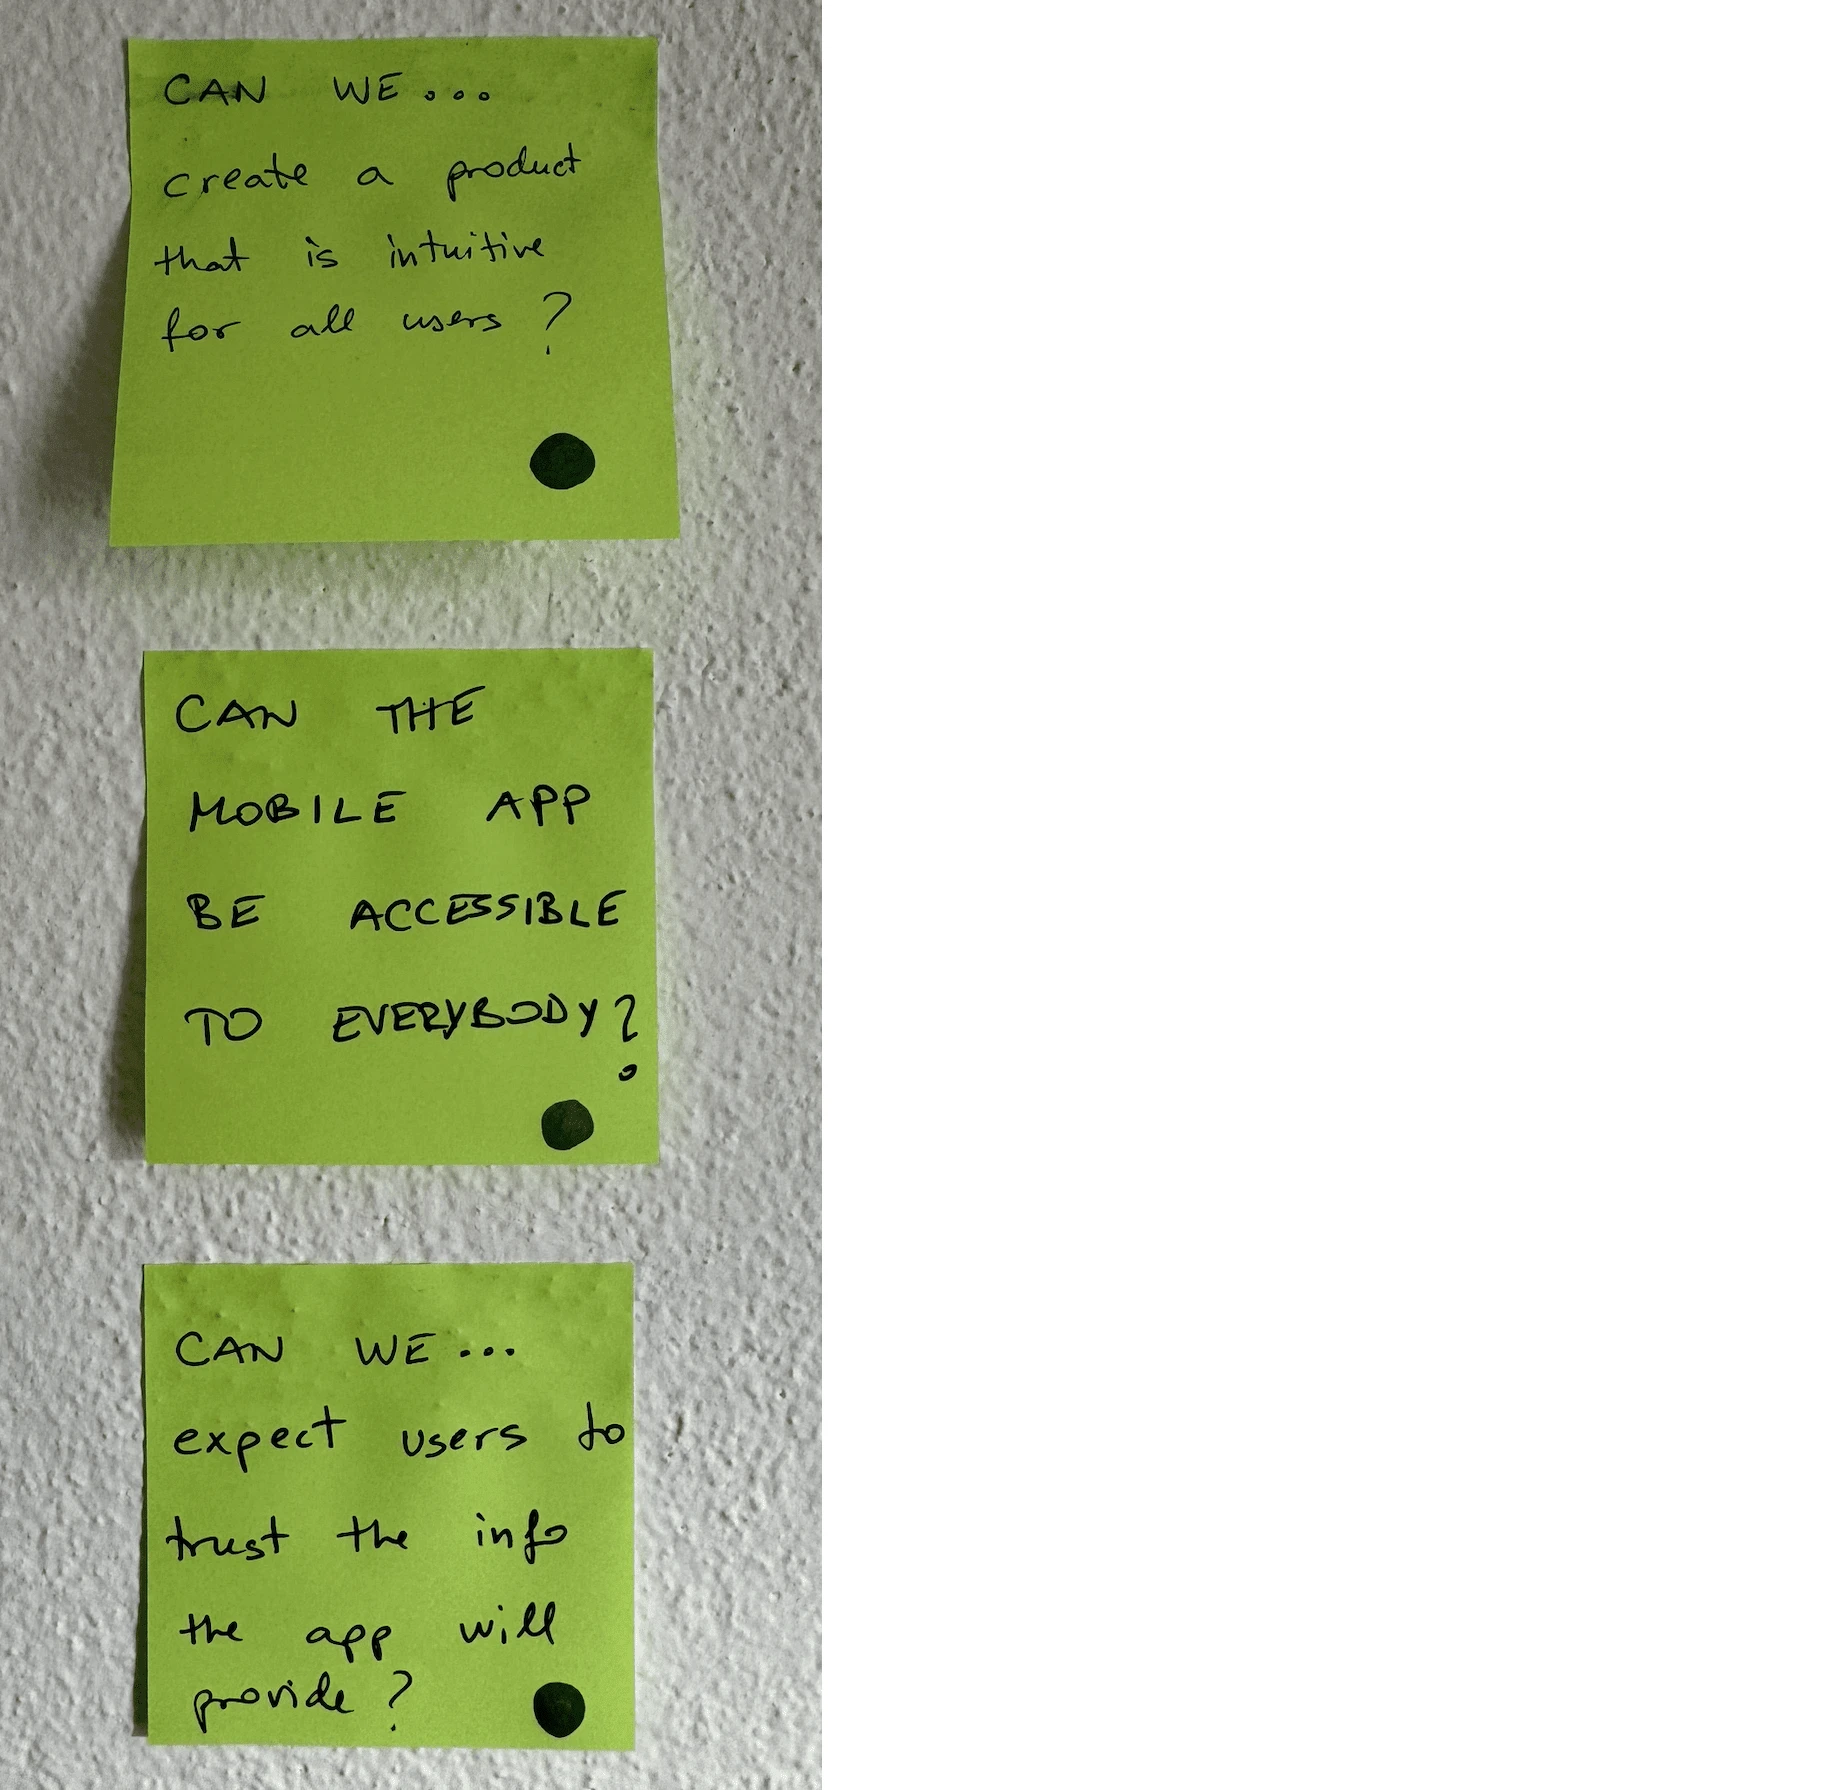 CAN WE...
create a product
that is intuitive
for all users?
CAN THE
MOBILE APP
BE ACCESSIBLE
TO EVERYBODY?
CAN WE...
expect users to
trust the info
the app will
provide?